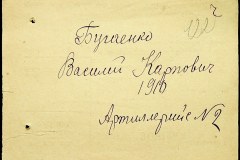 Бугаенко
Василий Карпович
1910
Артиллерийс N2